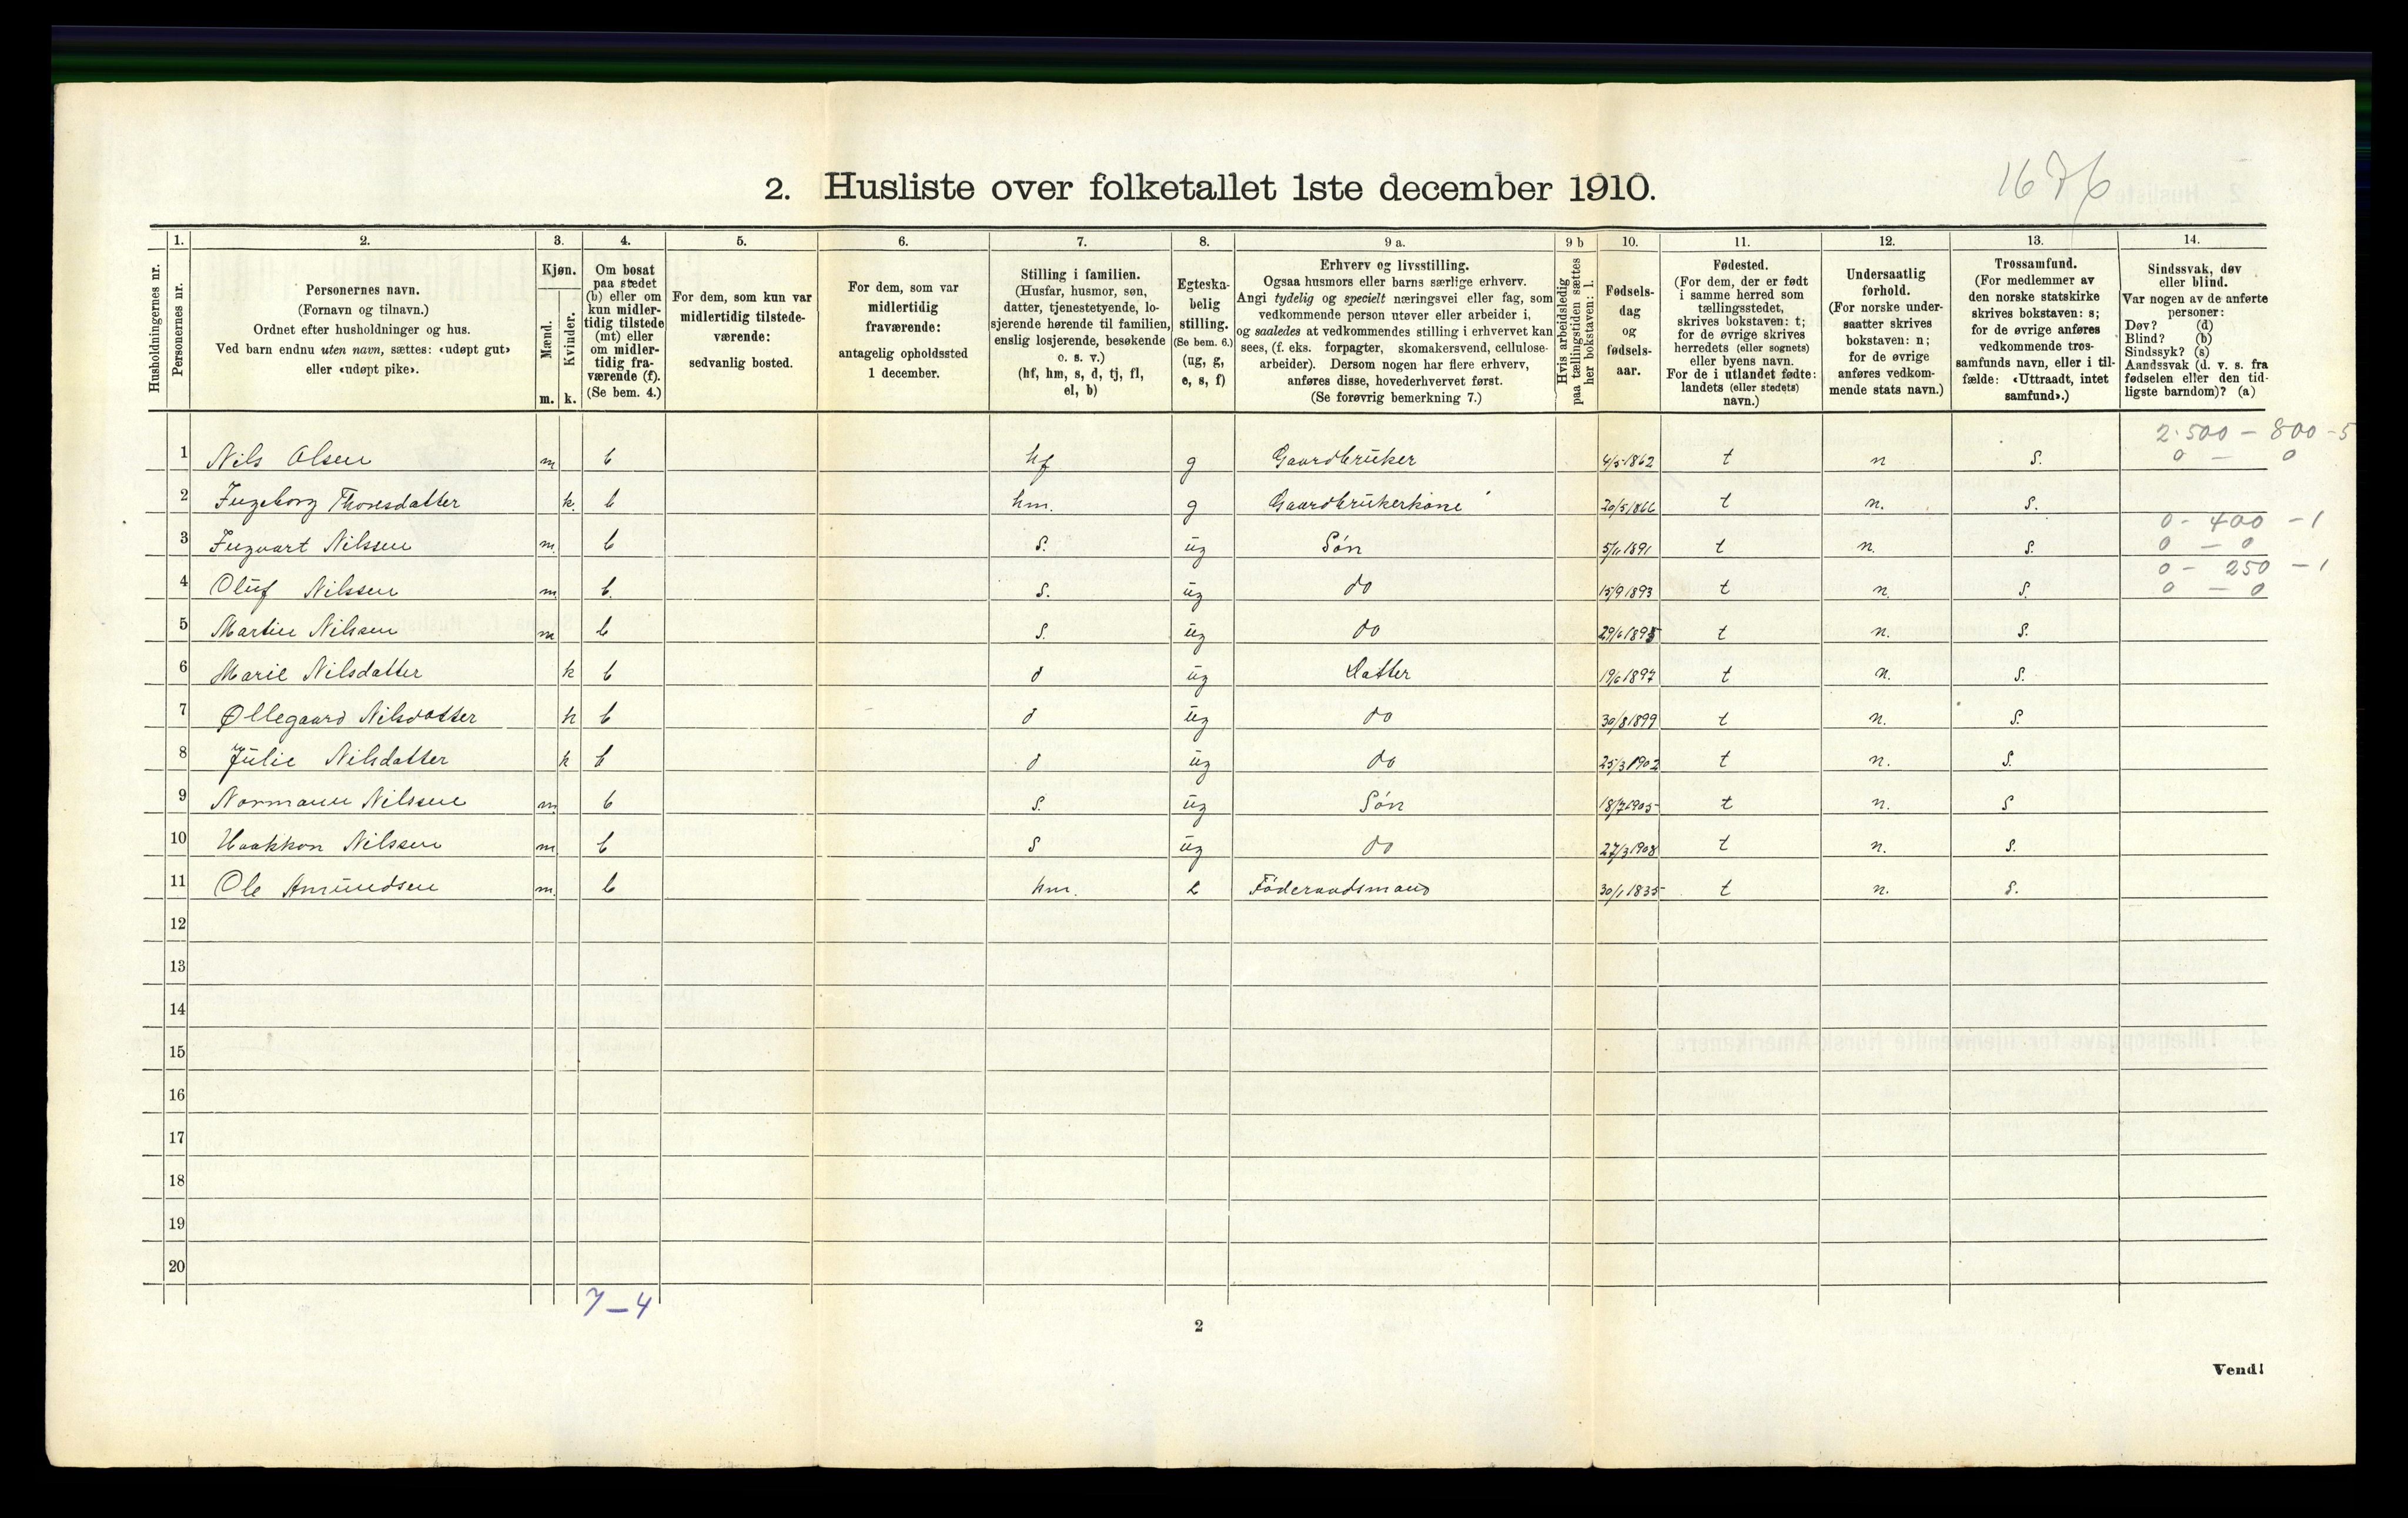 1676
2. Husliste over folketallet 1ste december 1910.
1. 2. 3. 4. 5. 6. 7. 8. 9 a. 9 b 10. 11. 12. 13. 14.
Husholdningernes nr.
Personernes nr.
Personernes navn.
(Fornavn og tilnavn.)
Ordnet efter husholdninger og hus.
Ved barn endnu uten navn, sættes: «udøpt gut»
eller «udøpt pike».
Kjøn.
Mænd.
Kvinder.
m. k.
Om bosat
paa stedet
(b) eller om
kun midler-
tidig tilstede
(mt) eller
om midler-
tidig fra-
værende (f).
(Se bem. 4.)
For dem, som kun var
midlertidig tilstede-
værende:
sedvanlig bosted.
For dem, som var
midlertidig
fraværende:
antagelig opholdssted
1 december.
Stilling i familien.
(Husfar, husmor, søn,
datter, tjenestetyende, lo-
sjerende hørende til familien,
enslig losjerende, besøkende
o. s. v.)
(hf, hm, s, d, tj, fl,
el, b)
Egteska-
belig
stilling.
(Se bem. 6.)
(ug, g,
e, s, f)
Erhverv og livsstilling.
Ogsaa husmors eller barns særlige erhverv.
Angi tydelig og specielt næringsvei eller fag, som
vedkommende person utøver eller arbeider i,
og saaledes at vedkommendes stilling i erhvervet kan
sees, (f. eks. forpagter, skomakersvend, cellulose-
arbeider). Dersom nogen har flere erhverv,
anføres disse, hovederhvervet først.
(Se forøvrig bemerkning 7.)
Hvis arbeidsledig
paa tællingstiden sættes
her bokstaven: l.
Fødsels-
dag
og
fødsels-
aar.
Fødested.
(For dem, der er født
i samme herred som
tællingsstedet,
skrives bokstaven: t;
for de øvrige skrives
herredets (eller sognets)
eller byens navn.
For de i utlandet fødte:
landets (eller stedets)
navn.)
Undersaatlig
forhold.
(For norske under-
saatter skrives
bokstaven: n;
for de øvrige
anføres vedkom-
mende stats navn.)
Trossamfund.
(For medlemmer av
den norske statskirke
skrives bokstaven: s;
for de øvrige anføres
vedkommende tros-
samfunds navn, eller i til-
fælde: «Uttraadt, intet
samfund».)
Sindssvak, døv
eller blind.
Var nogen av de anførte
personer:
Døv? (d)
Blind? (b)
Sindssyk? (s)
Aandssvak (d. v. s. fra
fødselen eller den tid-
ligste barndom)? (a)
2.500 - 800 - 5
1 Nils Olsen m b hf g Gaardbruker 4/5 1862 t n s. 0 - 0
2 Ingeborg Thoresdatter k. b hm. g Gaardbrukerkone 20/5 1866 t n. s.
0 - 400 - 1
3 Ingvart Nilssen m. b s. ug Søn 5/11 1891 t n. s. 0 - 0
0 - 250 - 1
4 Oluf Nilssen m. b. s. ug do 15/9 1893 t n. s. 0 - 0
5 Martin Nilssen m b s. ug do 29/6 1895 t n. s.
6 Marie Nilsdatter k b d ug Datter 19/6 1897 t n. s.
7 Øllegaard Nilsdatter k b d ug do 30/8 1899 t n. s.
8 Julie Nilsdatter k b d ug do 25/3 1902 t n. s.
9 Normann Nilssen m. b s. ug Søn 18/7 1905 t n. s
10 Haakkon Nilssen m. b s ug do 27/3 1908 t n. s.
11 Ole Amundsen m. b hm. e Föderaadsmand 30/1 1835 t n. s.
12
13
14
15
16
17
18
19
20
7-4
2
Vend!